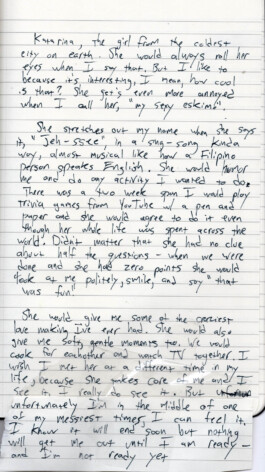 Katarina, the girl from the coldest
city on earth. She would always roll her
eyes when I say that. But I like to
because it's interesting, I mean, how cool
is that? She get's even more annoyed
when I call her, "my sexy eskimo".
She stretches out my name when she says
it, in a sing-song kinda
way, almost musical like how a Filipino
person speaks English. She would humor
me and do any activity I wanted to do.
There was a two week span I would play
trivia games from YouTube w/ a pen and
paper and she would agree to do it even
though her whole life was spent across the
world. Didn't matter that she had no clue
about half the questions - when we were
done and she had zero points she would
look at me politely, smile, and say "that
was fun!"
She would give me some of the craziest
love making I've ever had. She would also
give me soft, gentle moments too. We would
cook for eachother and watch TV together. I
wish I met her at a different time in my
life, because she takes care of me and I
see it. I really do see it. But
unfortunately I'm in the middle of one
of my messiest times. I can feel it.
I know it will end soon but nothing
will get me out until I am ready -
and I'm not ready yet